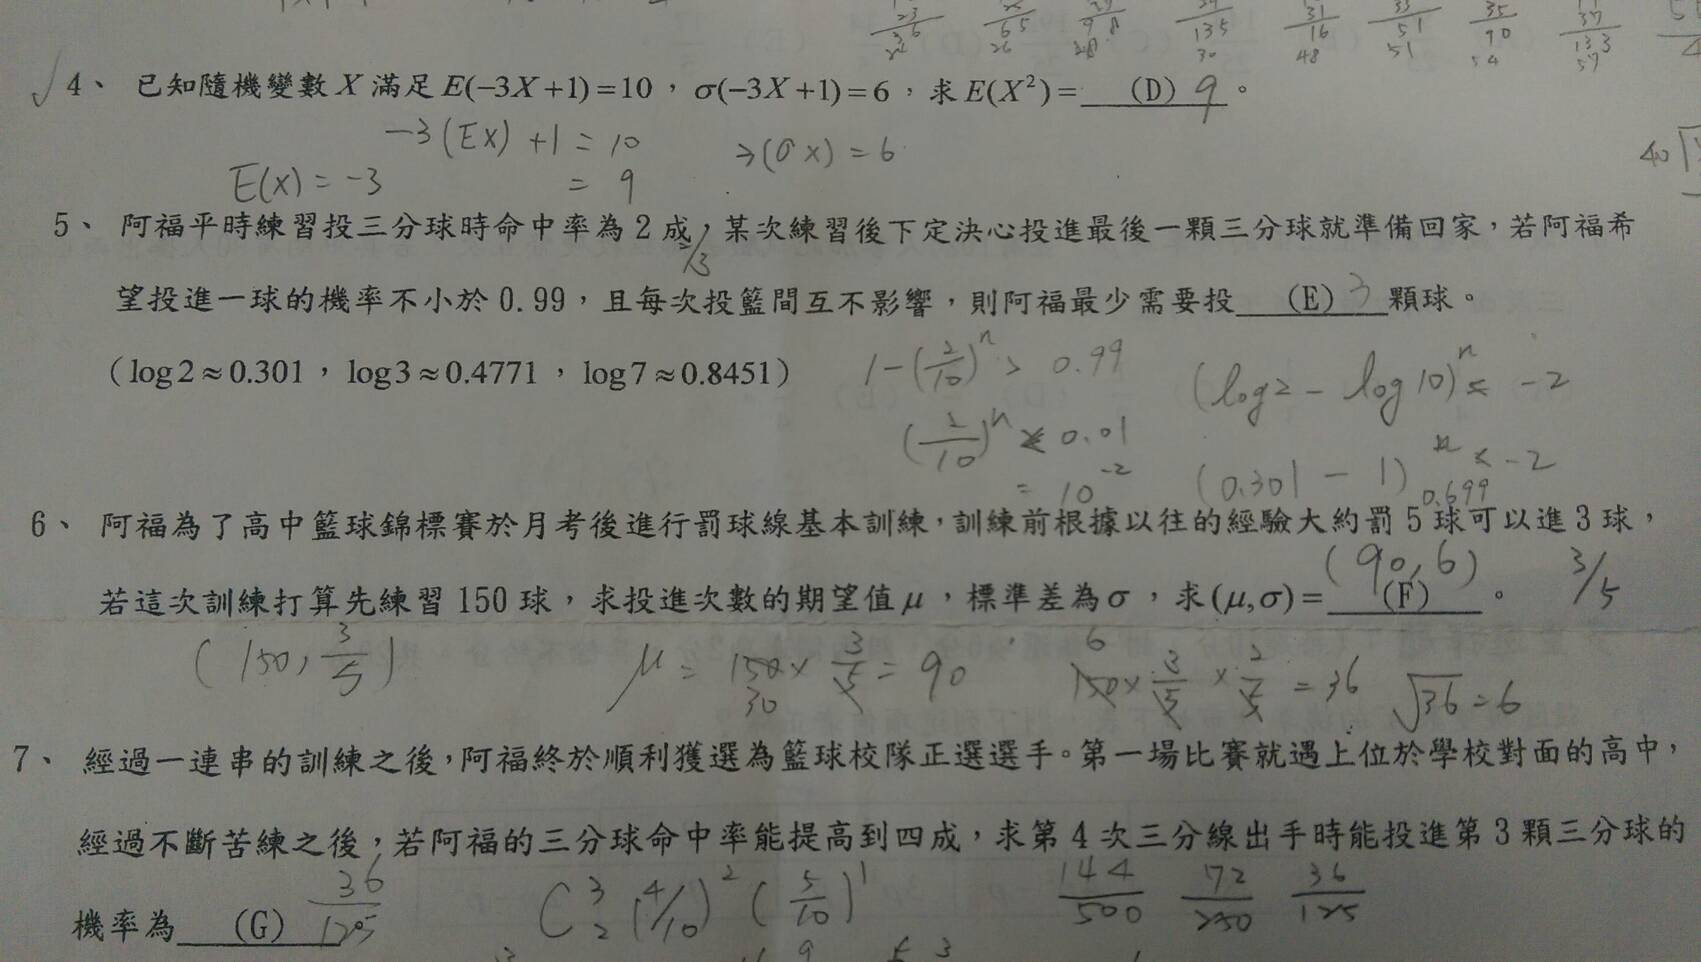 23 26 22
65 26
9 8 28
135 30
31 16 48
33 51 51
35 90 54
37 133 57
√4、 已知隨機變數 X 滿足 E(−3X+1)=10,σ(−3X+1)=6,求 E(X²)= (D) 9 。
−3(EX)+1=10 →(σx)=6 40
E(X)=−3 =9
5、 阿福平時練習投三分球時命中率為 2 成,某次練習後下定決心投進最後一顆三分球就準備回家,若阿福希
望投進一球的機率不小於 0.99,且每次投籃間互不影響,則阿福最少需要投 (E) 3 顆球。
(log2≈0.301,log3≈0.4771,log7≈0.8451) 1−(2/10)ⁿ> 0.99 (log2 − log10)ⁿ≤ −2
(2/10)ⁿ ≤ 0.01
= 10⁻² (0.301 − 1)ⁿ ≤ −2
0.699
6、 阿福為了高中籃球錦標賽於月考後進行罰球線基本訓練,訓練前根據以往的經驗大約罰 5 球可以進 3 球,
若這次訓練打算先練習 150 球,求投進次數的期望值 μ,標準差為 σ,求 (μ,σ)= (F) (90,6) 。 3/5
(150, 3/5) μ = 150× 3/5 = 90 150× 3/5 × 2/5 = 36 √36 = 6
30 6
7、 經過一連串的訓練之後,阿福終於順利獲選為籃球校隊正選選手。第一場比賽就遇上位於學校對面的高中,
經過不斷苦練之後,若阿福的三分球命中率能提高到四成,求第 4 次三分線出手時能投進第 3 顆三分球的
機率為 (G) 36/125 C 3 2 (4/10)² (5/10)¹ 144/500 72/250 36/125